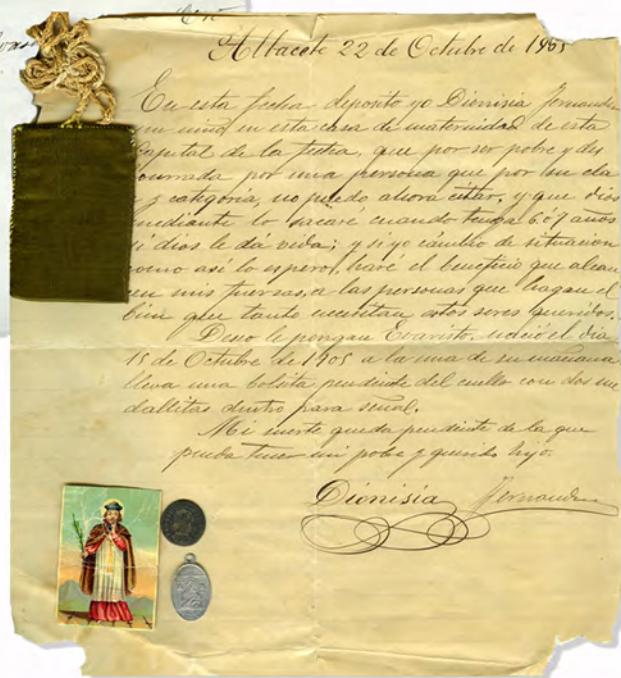 Albacete 22 de Octubre de 1905
En esta fecha deposito yo Dionisia Fernandez
un niño en esta casa de maternidad de esta
Capital de la fecha, que por ser pobre y des
ourrada por una persona que por su cla
y categoria, no puedo ahora citar, y que dios
mediante lo sacaré cuando tenga 6 o 7 años
si dios le dá vida; y si yo cámbio de situacion
como asi lo espero, haré el beneficio que alcan
cen mis fuerzas, a las personas que hagan el
bien que tanto necesitan estos seres queridos.
Deseo le pongan Evaristo, nació el dia
15 de Octubre de 1905 a la una de su mañana
lleva una bolsita pendiente del cuello con dos me
dallitas dentro para señal.
Mi suerte queda pendiente de la que
pueda tener mi pobre y querido hijo.
Dionisia Fernandez